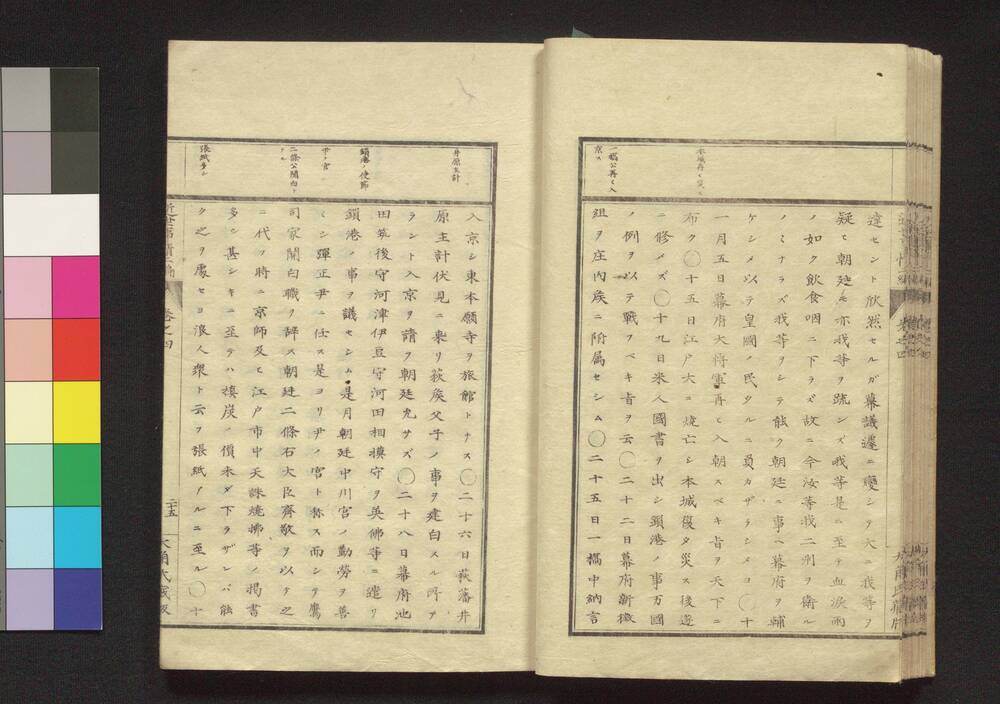 達セント欣然セルガ幕議遽ニ變シテ大ニ我等ヲ
疑ヒ朝廷モ亦我等ヲ疏ンズ我等是ニ至テ血淚雨
ノ如ク飲食咽ニ下ラズ故ニ今汝等我二刑ヲ衛ル
ノミナラズ我等ヲシテ能ク朝廷ニ事ヘ幕府ヲ輔
ケシメ以テ皇國ノ民タルニ負カザラシメヨ〇十
一月五日幕府大將軍再ヒ入朝スベキ旨ヲ天下ニ
布ク〇十五日江戸大ニ燒亡シ本城復タ災ス後遂
ニ修メズ〇十九日米人國書ヲ出シ鎖港ノ事万國
ノ例ヲ以テ戰フベキ旨ヲ云〇二十二日幕府新徴
組ヲ庄内矦ニ附屬セシム〇二十五日一橋中納言
本城再ヒ災ス
一橋公再ヒ入
京ス
入京シ東本願寺ヲ旅館トナス〇二十六日萩藩井
原主計伏見ニ來リ萩矦父子ノ事ヲ建白スル所ア
ラント入京ヲ請フ朝廷允サズ〇二十八日幕府池
田筑後守河津伊豆守河田相摸守ヲ英佛等ニ遣リ
鎖港ノ事ヲ議セシム是月朝廷中川宮ノ勤勞ヲ善
ミシ彈正尹ニ任ス是ヨリ尹ノ宮ト称ス而シテ鷹
司家關白職ヲ辞ス朝廷二條右大臣齊敬ヲ以テ之
ニ代フ時ニ京師及ヒ江戸市中天誅燒拂等ノ揭書
多シ甚シキニ至テハ横炭ノ價未ダ下ラザレバ能
ク之ヲ處セヨ浪人衆ト云フ張紙アルニ至ル〇十
井原主計
鎖港ノ使節
尹ノ宮
二條公關白タ
ル
張紙多シ
卷之四
二十五